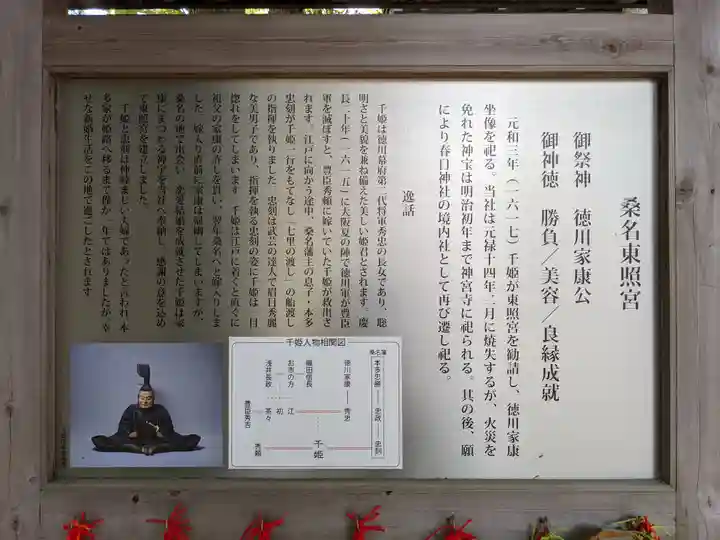 桑名東照宮
御祭神　徳川家康公
御神徳　勝負／美容／良縁成就
元和三年（一六一七）千姫が東照宮を勧請し、徳川家康
坐像を祀る。当社は元禄十四年二月に焼失するが、火災を
免れた神宝は明治初年まで神宮寺に祀られる。其の後、願
により春日神社の境内社として再び遷し祀る。
逸話
千姫は徳川幕府第二代将軍秀忠の長女であり、聡
明さと美貌を兼ね備えた美しい姫君とされます。慶
長二十年（一六一五）に大阪夏の陣で徳川軍が豊臣
軍を滅ぼすと、豊臣秀頼に嫁いでいた千姫が救出さ
れます。江戸に向かう途中、桑名藩主の息子・本多
忠刻が千姫一行をもてなし「七里の渡し」の船渡し
の指揮を執りました。忠刻は武芸の達人で眉目秀麗
な美男子であり、指揮を執る忠刻の姿に千姫は一目
惚れをしてしまいます。千姫は江戸に着くと直ぐに
祖父の家康の許しを貰い、翌年桑名へと嫁入りしま
した。嫁入り直前に家康は
桑名の地で出会い、恋愛結婚を成就させた千姫は家
康にまつわる神宝を当社へ奉納し、感謝の意を込め
て東照宮を建立しました。
千姫と忠刻は仲睦まじい夫婦であったと言われ、本
多家が姫路へ移るまで僅か一年ではありましたが、幸
せな新婚生活をこの地で過ごしたとされます。
千姫人物相関図
桑名藩
本多忠勝
忠政
忠刻
徳川家康
秀忠
千姫
織田信長
お市の方
浅井長政
江
初
茶々
豊臣秀吉
秀頼